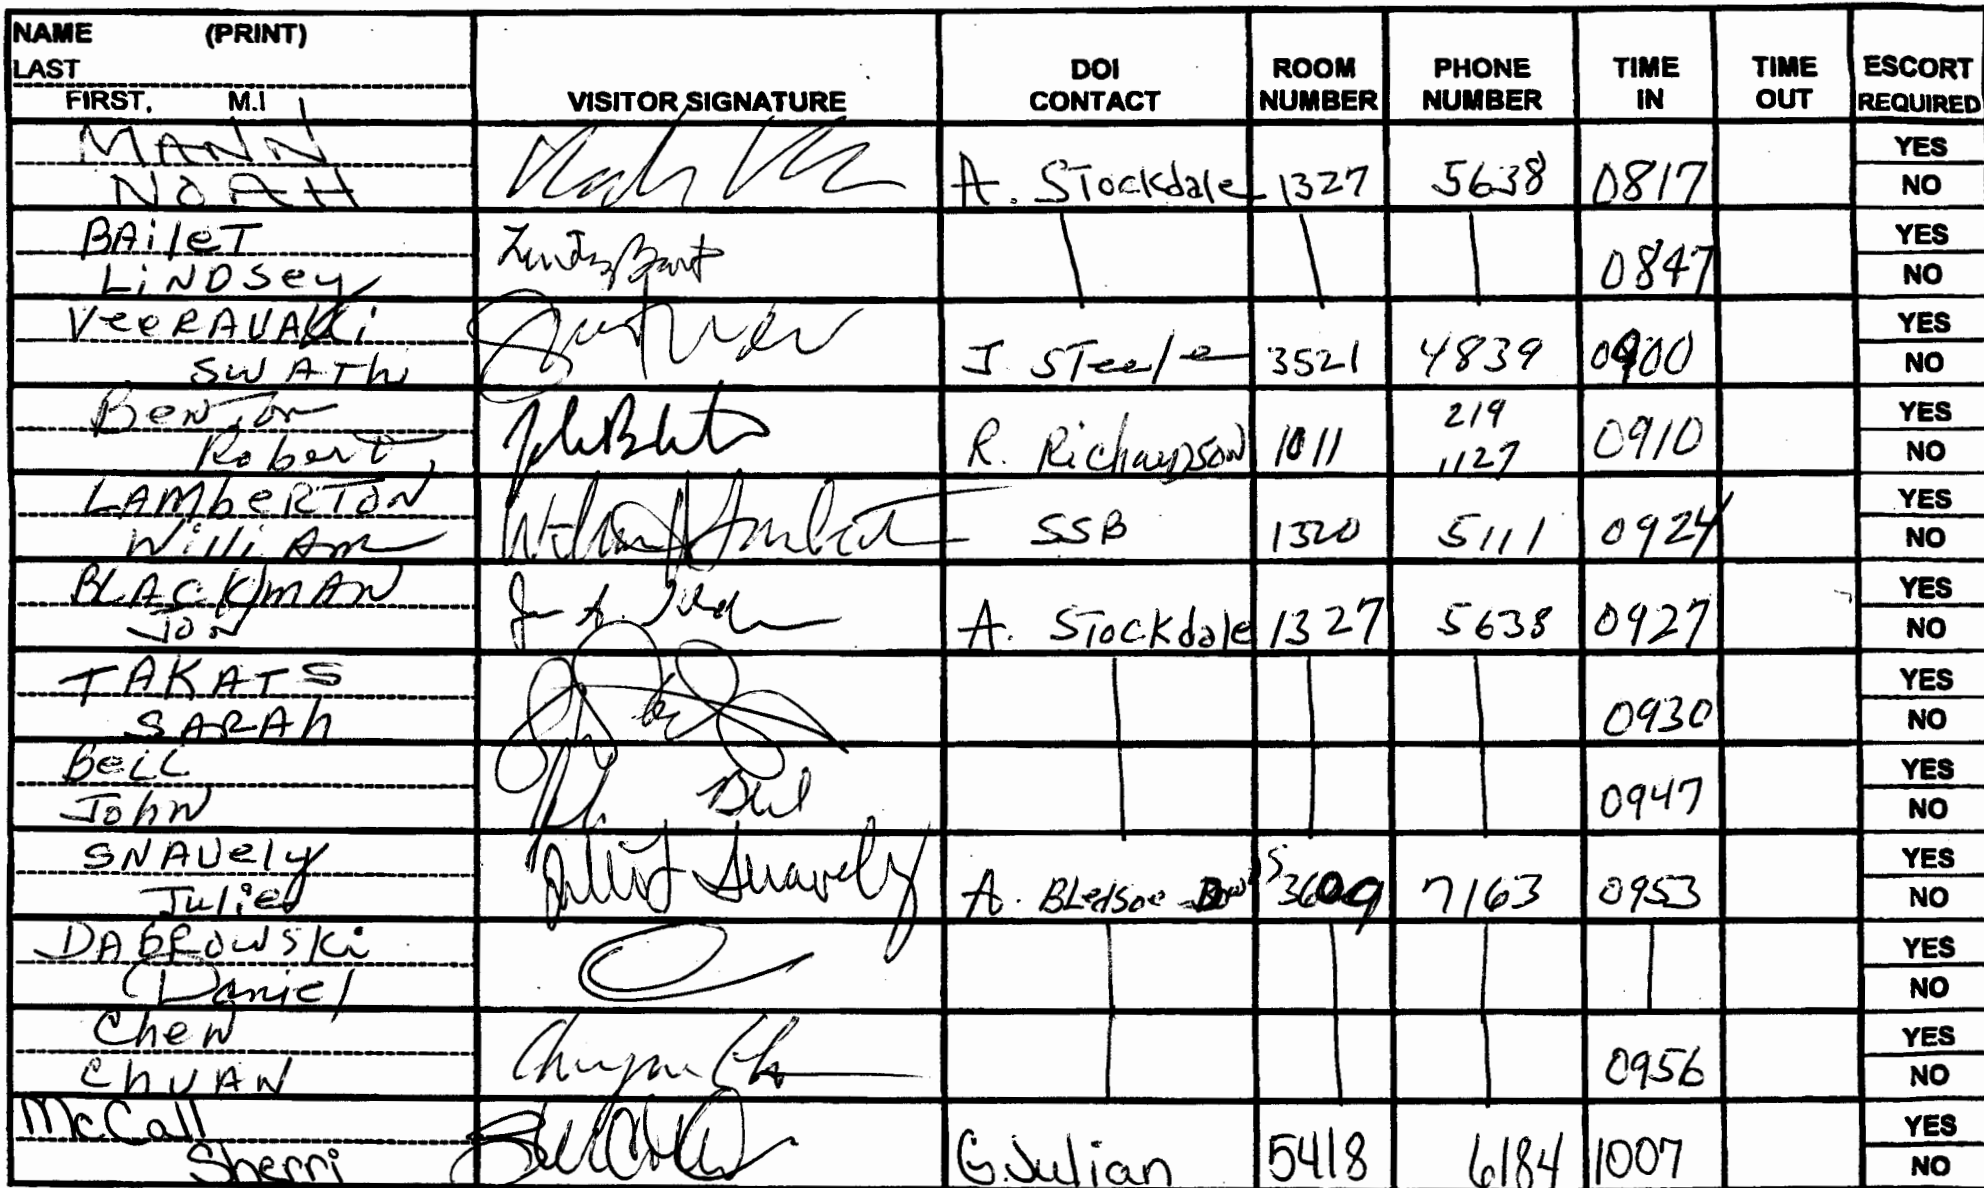 NAME (PRINT)
LAST
FIRST, M.I
VISITOR SIGNATURE
DOI CONTACT
ROOM NUMBER
PHONE NUMBER
TIME IN
TIME OUT
ESCORT REQUIRED
MANN
NOAH
A. Stockdale 1327 5638 0817
YES
NO
BAileT
LiNDSey
0847
YES
NO
VeeRAVAlli
SWATHi
J Steele 3521 4839 0900
YES
NO
Benton
Robert
R. RichaRDSON 1011 219 1127 0910
YES
NO
LAMbeRTON
WilliAm
SSB 1320 5111 0924
YES
NO
BLACKMAN
JON
A. Stockdale 1327 5638 0927
YES
NO
TAKATS
SARAh
0930
YES
NO
BeLL
John
0947
YES
NO
SNAVely
Julie
Snavely
A. BLedsoe 3609 7163 0953
YES
NO
DABROWSKi
Daniel
YES
NO
CheN
ChUAN
0956
YES
NO
McCall
Sherri
G. Julian 5418 6184 1007
YES
NO